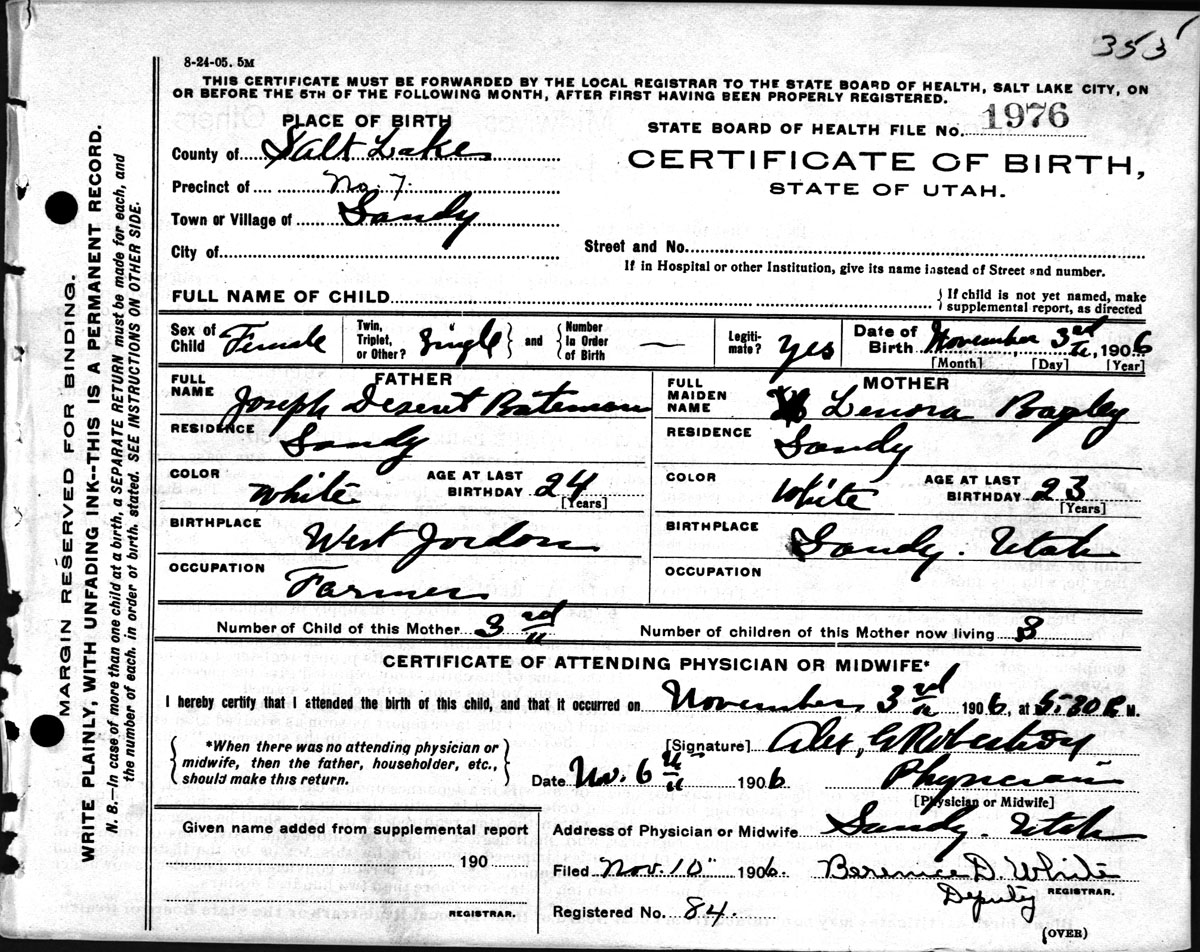 353
8-24-05. 5M
THIS CERTIFICATE MUST BE FORWARDED BY THE LOCAL REGISTRAR TO THE STATE BOARD OF HEALTH, SALT LAKE CITY, ON
OR BEFORE THE 5TH OF THE FOLLOWING MONTH, AFTER FIRST HAVING BEEN PROPERLY REGISTERED.
PLACE OF BIRTH
STATE BOARD OF HEALTH FILE No. 1976
County of Salt Lake
CERTIFICATE OF BIRTH,
STATE OF UTAH.
Precinct of No. 7.
Town or Village of Sandy
City of
Street and No.
If in Hospital or other Institution, give its name instead of Street and number.
FULL NAME OF CHILD
If child is not yet named, make
supplemental report, as directed
Sex of Child Female
Twin, Triplet, or Other? Single and Number In Order of Birth —
Legitimate? yes
Date of Birth November 3rd, 1906
[Month] [Day] [Year]
FATHER
FULL NAME Joseph Deseret Bateman
RESIDENCE Sandy
COLOR White AGE AT LAST BIRTHDAY 24
[Years]
BIRTHPLACE West Jordon
OCCUPATION Farmer
MOTHER
FULL MAIDEN NAME Lenora Bagley
RESIDENCE Sandy
COLOR White AGE AT LAST BIRTHDAY 23
[Years]
BIRTHPLACE Sandy. Utah
OCCUPATION
Number of Child of this Mother 3rd
Number of children of this Mother now living 3
CERTIFICATE OF ATTENDING PHYSICIAN OR MIDWIFE*
I hereby certify that I attended the birth of this child, and that it occurred on November 3rd 1906, at 5:30 P. M.
*When there was no attending physician or
midwife, then the father, householder, etc.,
should make this return.
[Signature] Alex, G Robertson
Date Nov. 6th 1906 Physician
[Physician or Midwife]
Address of Physician or Midwife Sandy. Utah
Filed Nov. 10" 1906. Berenice D. White
Deputy REGISTRAR.
Registered No. 84.
(OVER)
Given name added from supplemental report
190
REGISTRAR.
MARGIN RESERVED FOR BINDING.
WRITE PLAINLY, WITH UNFADING INK--THIS IS A PERMANENT RECORD.
N. B.—In case of more than one child at a birth, a SEPARATE RETURN must be made for each, and
the number of each, in order of birth, stated. SEE INSTRUCTIONS ON OTHER SIDE.